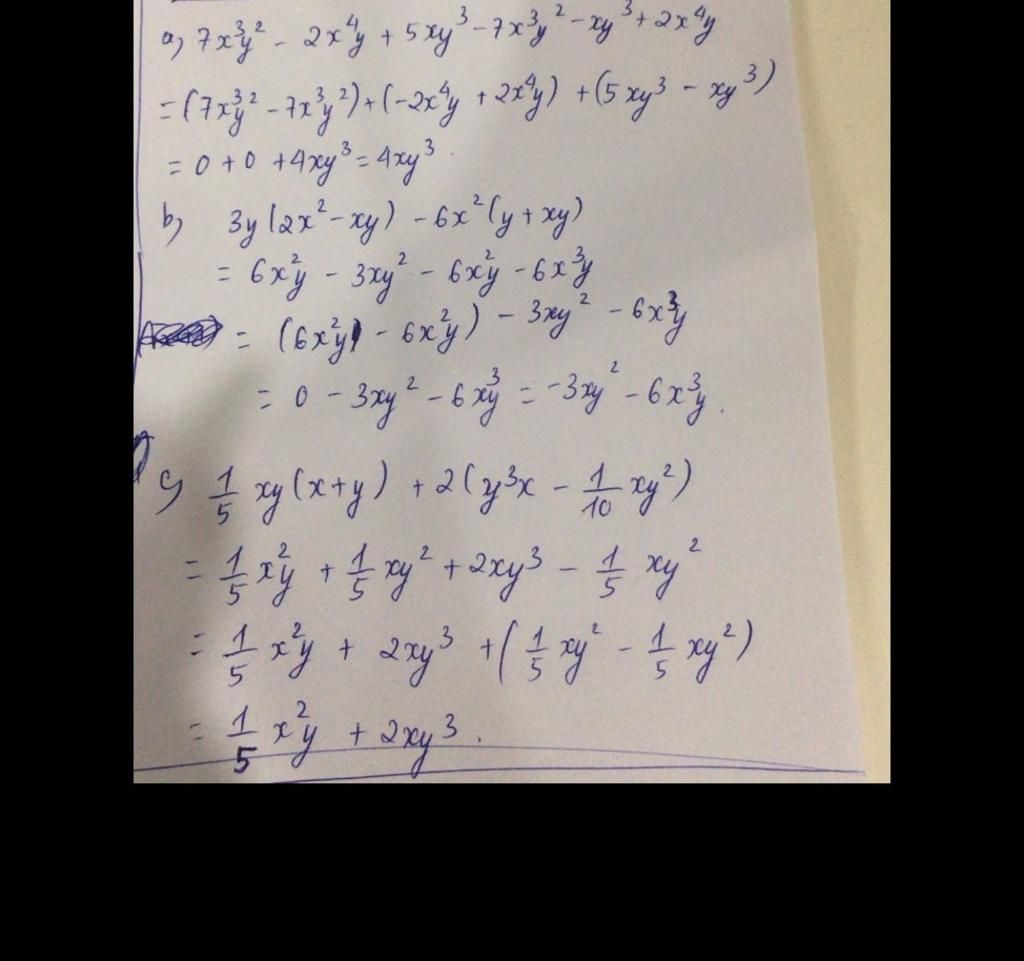 a) 7x³y² - 2x⁴y + 5xy³ - 7x³y² - xy³ + 2x⁴y
= (7x³y² - 7x³y²) + (-2x⁴y + 2x⁴y) + (5xy³ - xy³)
= 0 + 0 + 4xy³ = 4xy³.
b) 3y(2x² - xy) - 6x²(y + xy)
= 6x²y - 3xy² - 6x²y - 6x³y
= (6x²y - 6x²y) - 3xy² - 6x³y
= 0 - 3xy² - 6x³y = -3xy² - 6x³y.
c) 1/5 xy(x+y) + 2(y³x - 1/10 xy²)
= 1/5 x²y + 1/5 xy² + 2xy³ - 1/5 xy²
= 1/5 x²y + 2xy³ + (1/5 xy² - 1/5 xy²)
= 1/5 x²y + 2xy³.